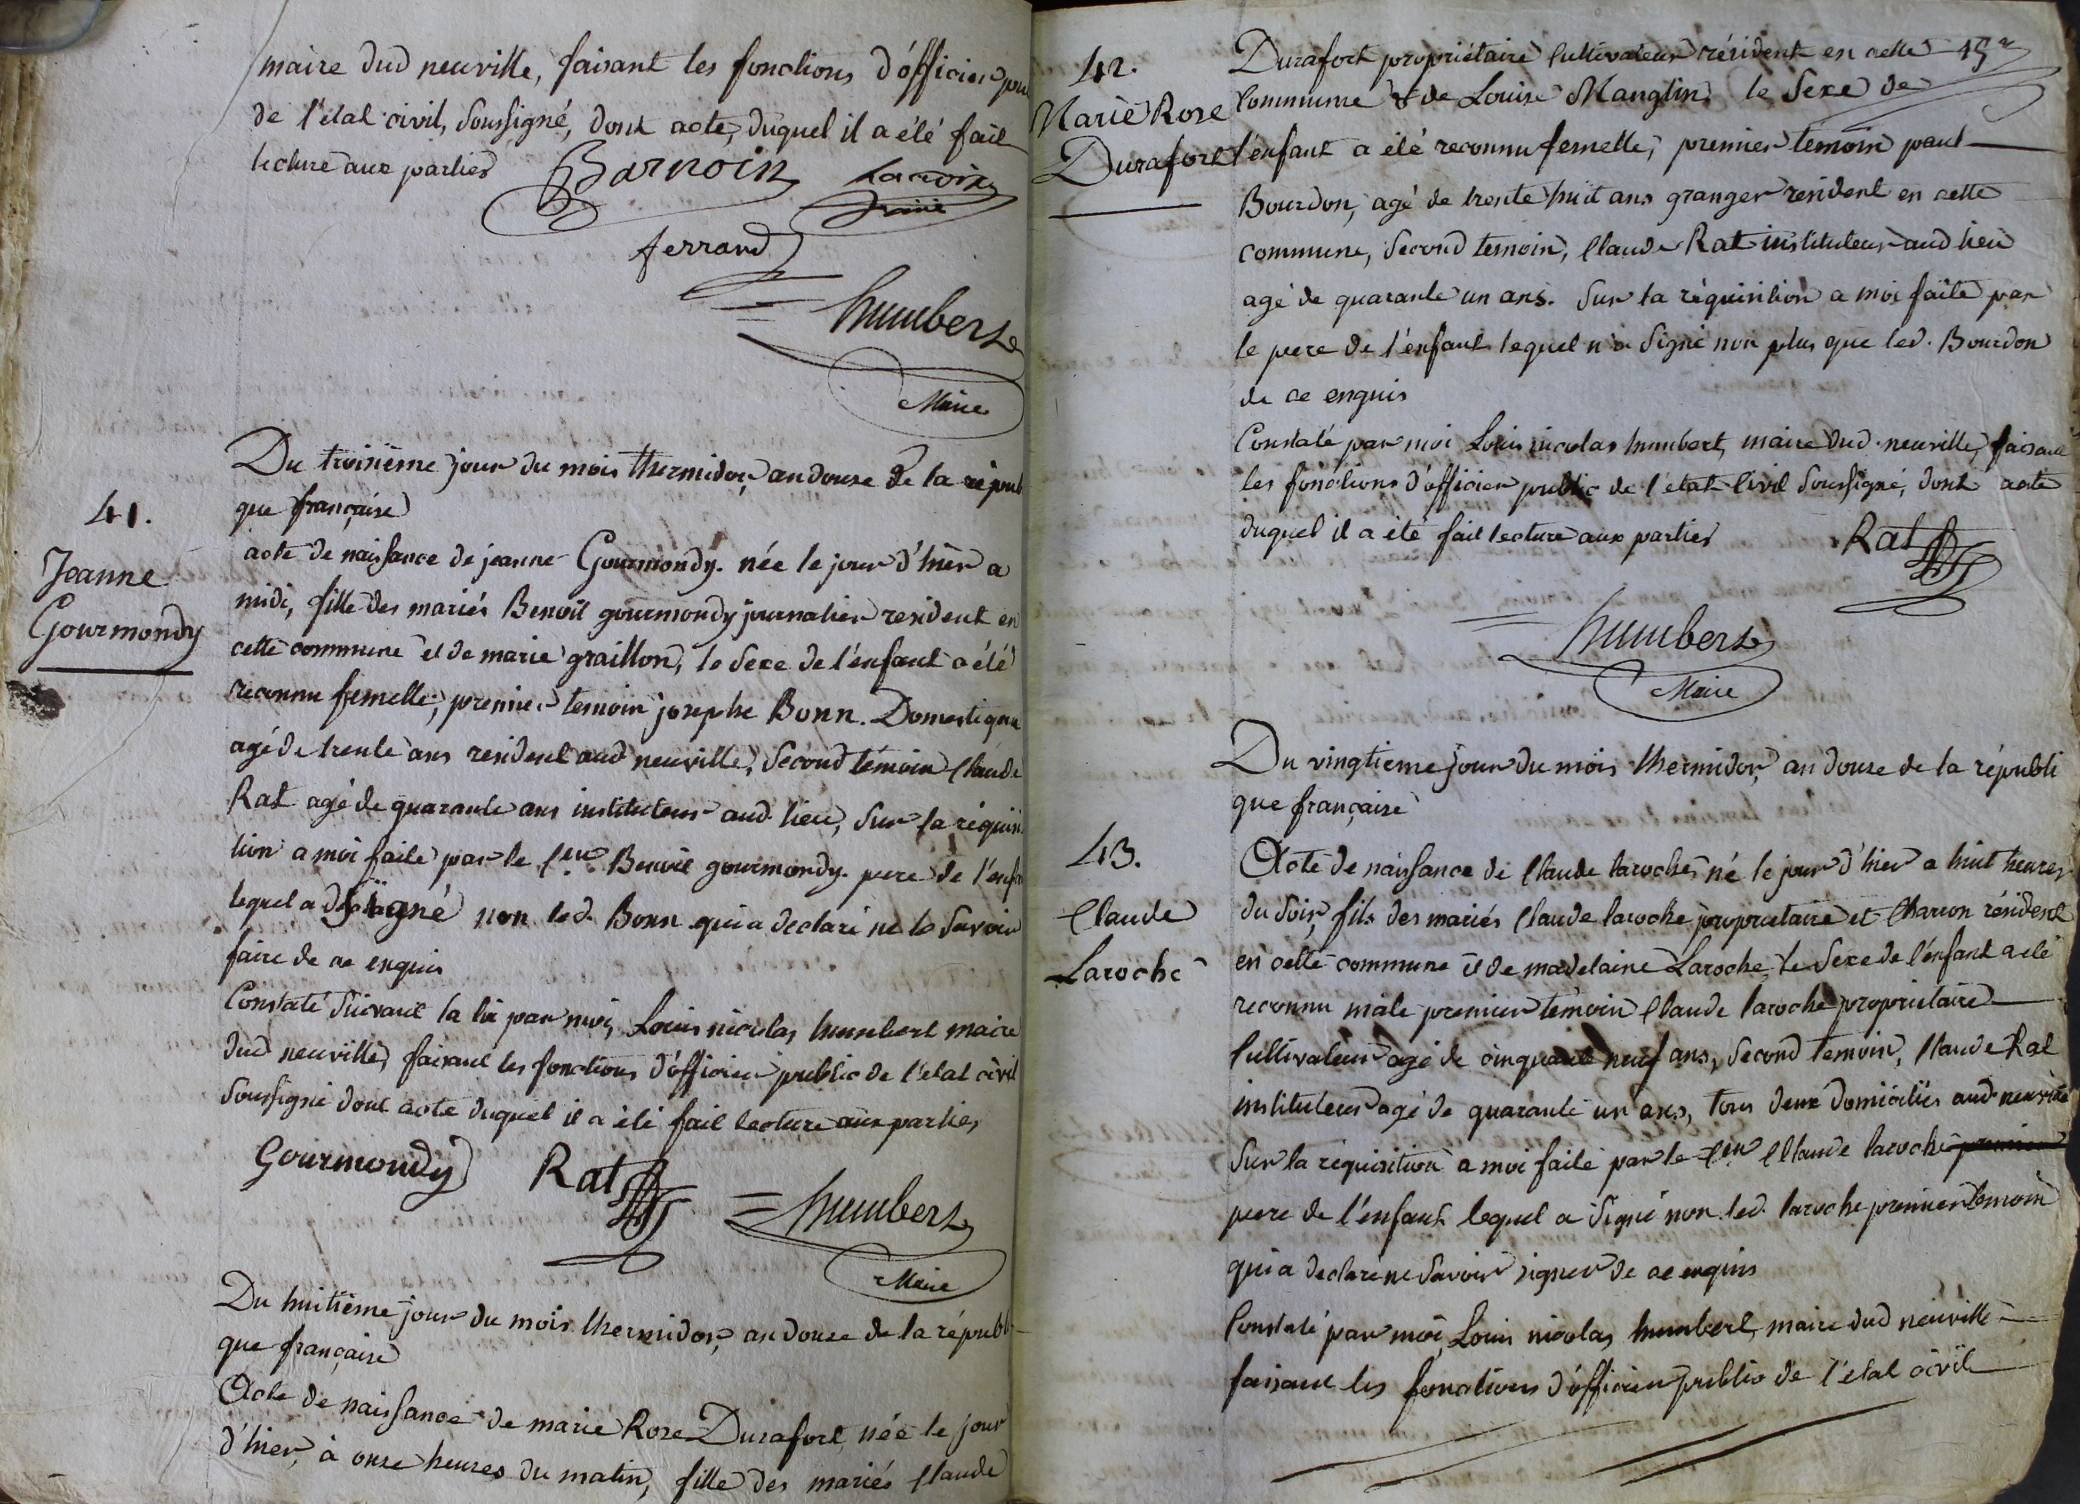 maire dud neuville, faisant les fonctions d'officier pu
de l'état civil, soussigné, dont acte, duquel il a été fait
lecture aux parties Barnoin Lacroix
ferrand
humbert
Maire
Du troisième jour du mois thermidor, an douze de la répub
que française
41.
Jeanne
Gourmondy
acte de naissance de jeanne Gourmondy. née le jour d'hier a
midi, fille des mariés Benoit gourmondy journalier resident en
cette commune et de marie graillon, le sexe de l'enfant a été
reconnu femelle; premier temoin josephe Bonn. Domestique
agé de trente ans resident aud neuville, second témoin Claude
Rat agé de quarante ans instituteur aud. lieu, sur la réquisi
tion a moi faite par le Cen Benoit gourmondy. pere de l'enfa
lequel a signé non led. Bonn qui a declaré ne le savoir
faire de ce enquis
Constaté suivant la loi par moi, Louis nicolas humbert maire
dud neuville, faisant les fonctions d'officier public de l'etat civil
soussigné dont acte duquel il a été fait lecture aux parties
Gourmondy Rat humbert
Maire
Du huitième jour du mois thermidor, an douze de la républi
que française
Acte de naissance de marie Rose Durafort, née le jour
d'hier, à onze heures du matin, fille des mariés Claude
42.
Marie Rose
Durafort
Durafort propriétaire Cultivateur résident en cette
Commune & de Louise Manglin, le sexe de
l'enfant a été reconnu femelle, premier temoin paul
Bourdon, agé de trente huit ans granger resident en cette
commune, second temoin, Claude Rat instituteur aud lieu
agé de quarante un ans. sur la réquisition a moi faite par
le pere de l'enfant lequel n'a signé non plus que led. Bourdon
de ce enquis
Constaté par moi Louis nicolas humbert, maire dud. neuville, faisant
les fonctions d'officier public de l'etat Civil soussigné, dont acte
duquel il a été fait lecture aux parties Rat
humbert
Maire
Du vingtieme jour du mois thermidor, an douze de la républi
que française
43.
Claude
Laroche
Acte de naissance de Claude laroche né le jour d'hier a huit heures
du soir, fils des mariés Claude laroche propriétaire et Charon résident
en cette commune et de madelaine Laroche, le sexe de l'enfant a été
reconnu male premier temoin Claude laroche propriétaire
Cultivateur agé de cinquante neuf ans, second temoin, Claude Rat
instituteur agé de quarante un ans, tous deux domiciliés aud neuville
sur la réquisition a moi faite par le Cen Claude laroche premier
pere de l'enfant lequel a signé non led. laroche premier temoin
qui a declaré ne savoir signer de ce enquis
Constaté par moi, Louis nicolas humbert, maire dud neuville
faisant les fonctions d'officier public de l'etat civil